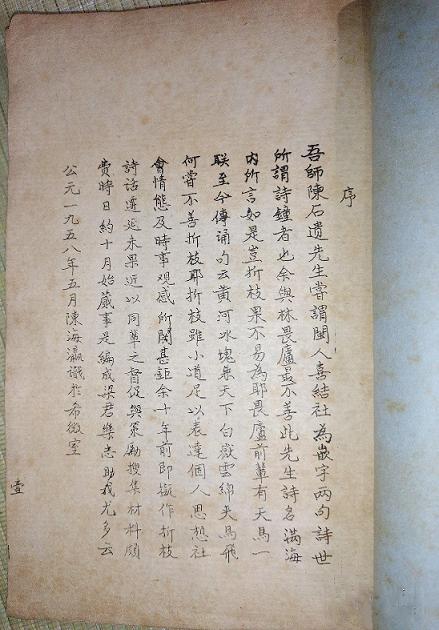 序
吾師陳石遺先生嘗謂閩人喜結社為嵌字兩句詩世
所謂詩鐘者也余與林畏廬最不善此先生詩名滿海
内所言如是豈折枝果不易為耶畏廬前輩有天馬一
联至今傳誦句云黄河冰塊兼天下白嶽雲綿夹馬飛
何嘗不善折枝耶折枝雖小道足以表達個人思想社
會情態及時事观感所關甚鉅余十年前即擬作折枝
詩話遷延未果近以同輩之督促與策勵搜集材料頗
费時日約十月始蕆事是編成梁君樂志助我尤多云
公元一九五八年五月陳海瀛識於希微室
壹